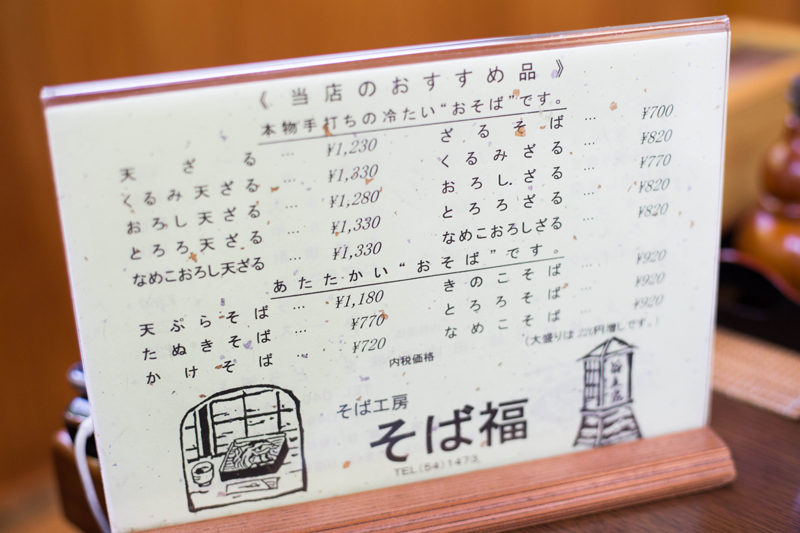 《当店のおすすめ品》
本物手打ちの冷たい“おそば”です。
天ざる … ¥1,230
くるみ天ざる … ¥1,330
おろし天ざる … ¥1,280
とろろ天ざる … ¥1,330
なめこおろし天ざる … ¥1,330
ざるそば … ¥700
くるみざる … ¥820
おろしざる … ¥770
とろろざる … ¥820
なめこおろしざる … ¥820
あたたかい“おそば”です。
天ぷらそば … ¥1,180
たぬきそば … ¥770
かけそば … ¥720
きのこそば … ¥920
とろろそば … ¥920
なめこそば … ¥920
内税価格
(大盛りは 220円増しです。)
そば工房
そば福
TEL(54)1473